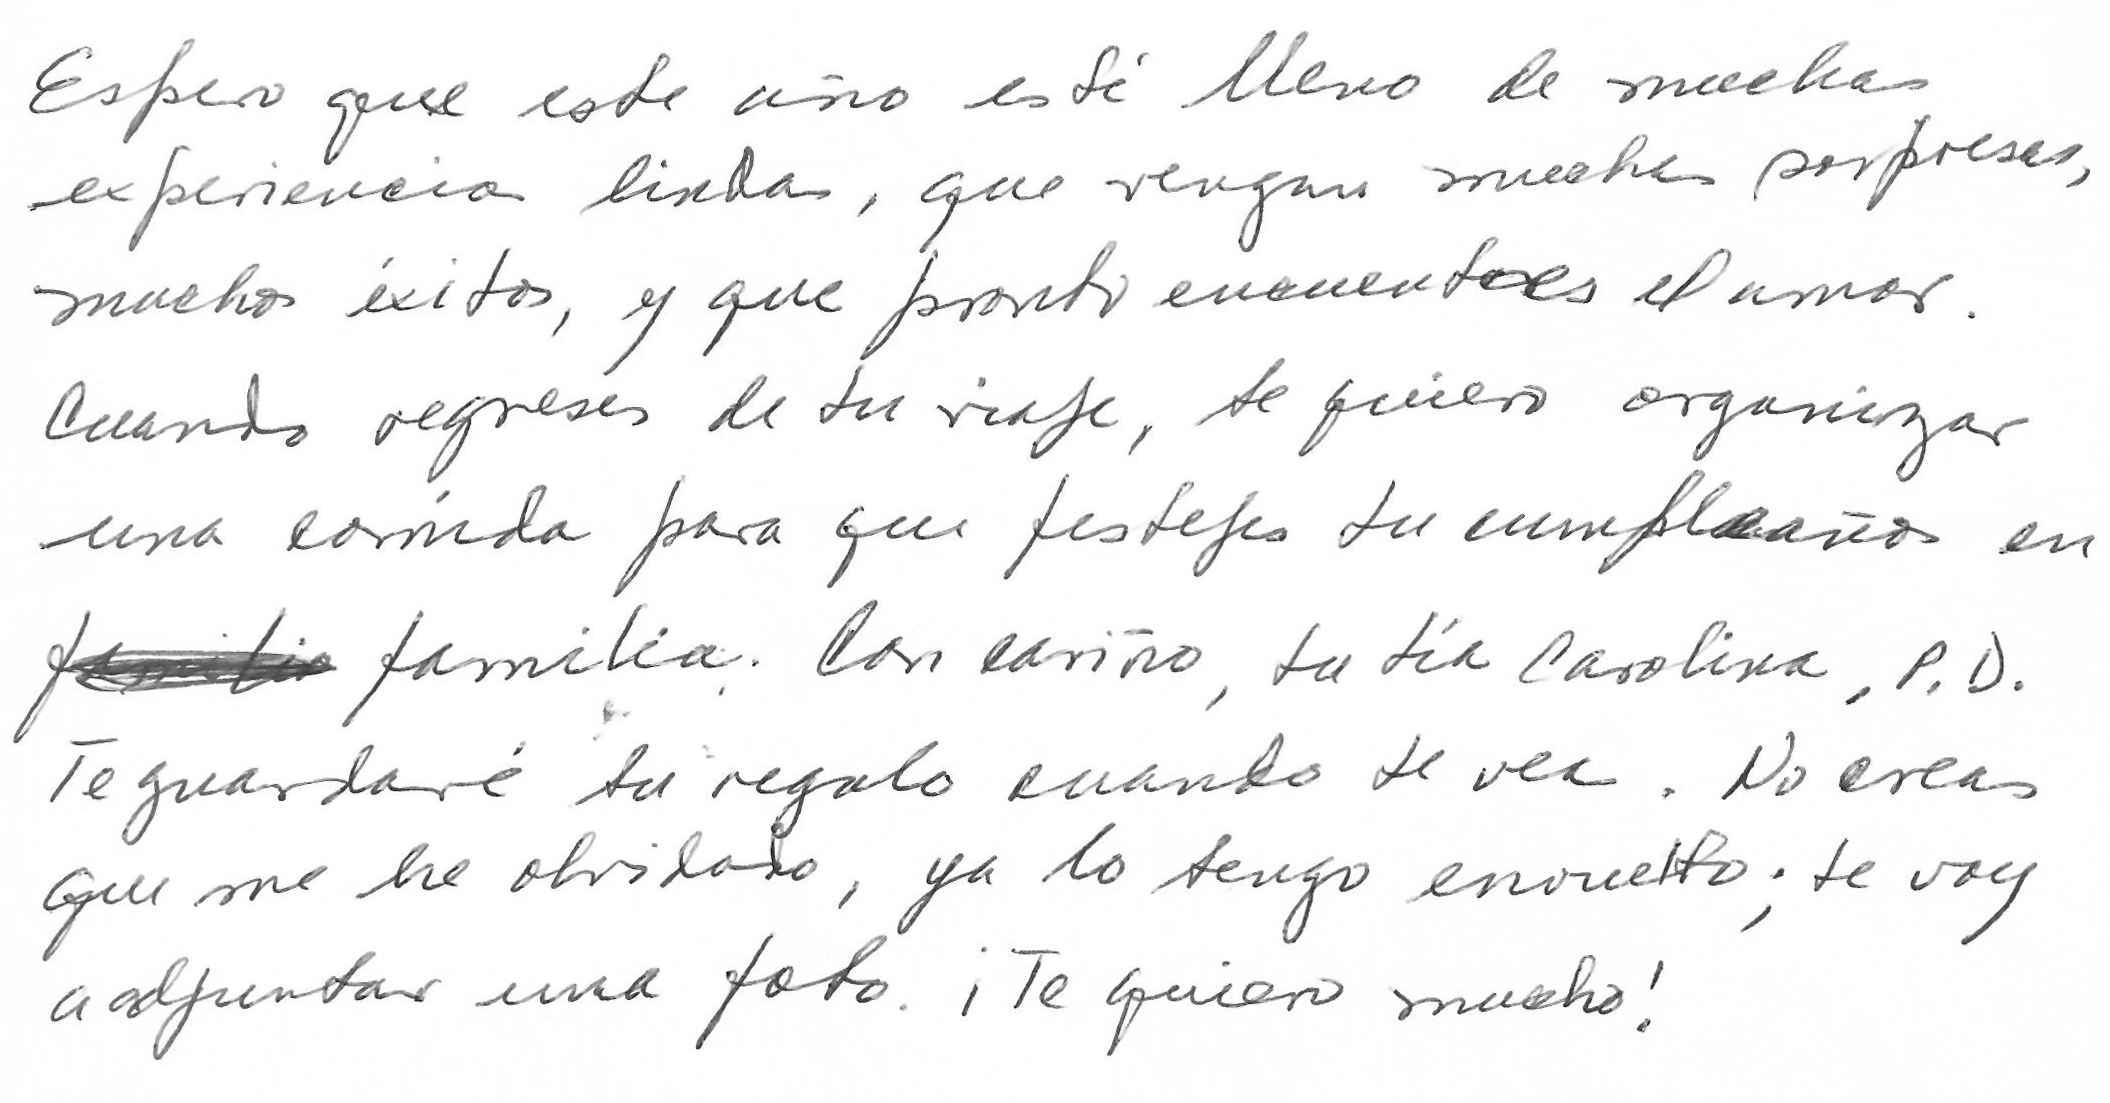 Espero que este año esté lleno de muchas
experiencias lindas, que vengan muchas sorpresas,
muchos éxitos, y que pronto encuentres el amor.
Cuando regreses de tu viaje, te quiero organizar
una comida para que festejes tu cumpleaños en
familia familia. Con cariño, tu tía Carolina, P.D.
Te guardaré tu regalo cuando te vea. No creas
que me he olvidado, ya lo tengo envuelto; te voy
a adjuntar una foto. ¡Te quiero mucho!